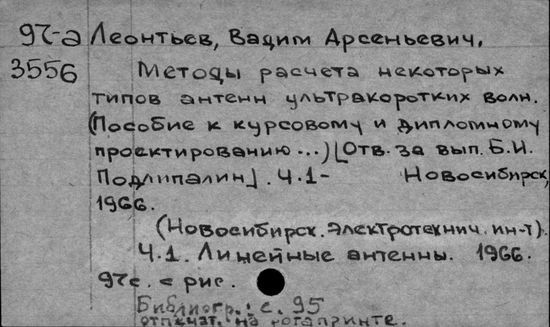 97-а Леонтьев, Вадим Арсеньевич.
3556 Методы расчета некоторых
типов антенн ультракоротких волн.
(Пособие к курсовому и дипломному
проектированию...) [Отв. за вып. Б.И.
Подлипалин]. Ч.1- Новосибирск,
1966.
(Новосибирск. электротехнич. ин-т).
Ч.1. Линейные антенны. 1966.
97с. с рис.
Библиогр.: с. 95
отпечат. на ротапринте.